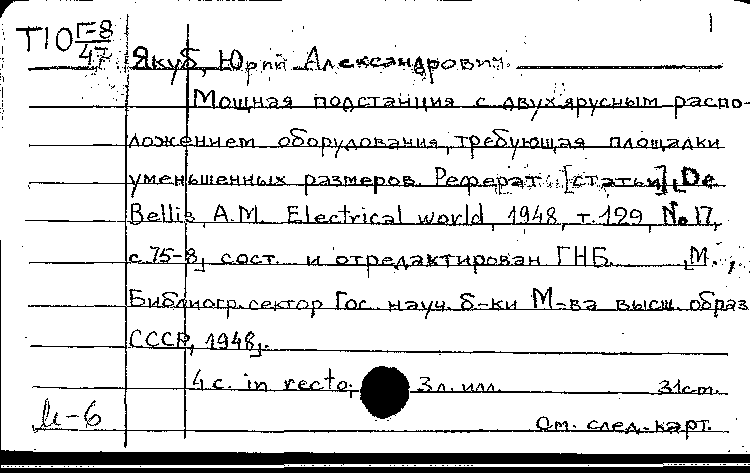 1
Т10 Г-8
47
Якуб, Юрий Александрович.
Мощная подстанция с двухярусным распо-
ложением оборудования, требующая площадки
уменьшенных размеров. Реферат [статьи] De
Bellis, A.M. Electrical world, 1948, т.129, No 17,
с.75-8, сост. и отредактирован ГНБ. М.,
Библиогр. сектор Гос. науч. б-ки М-ва высш. образ
СССР, 1948.
4 с. in recto, 3 л. илл. 31 ст.
См. след. карт.
И-6